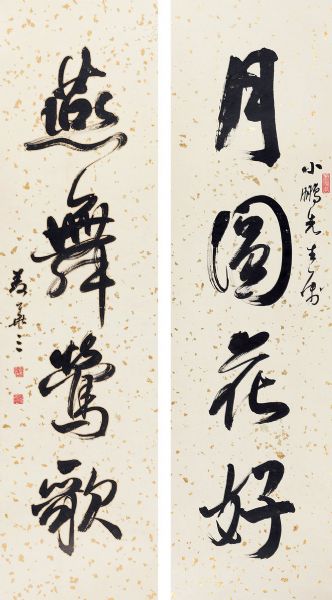 月圓花好
小鵬先生屬
燕舞鶯歌